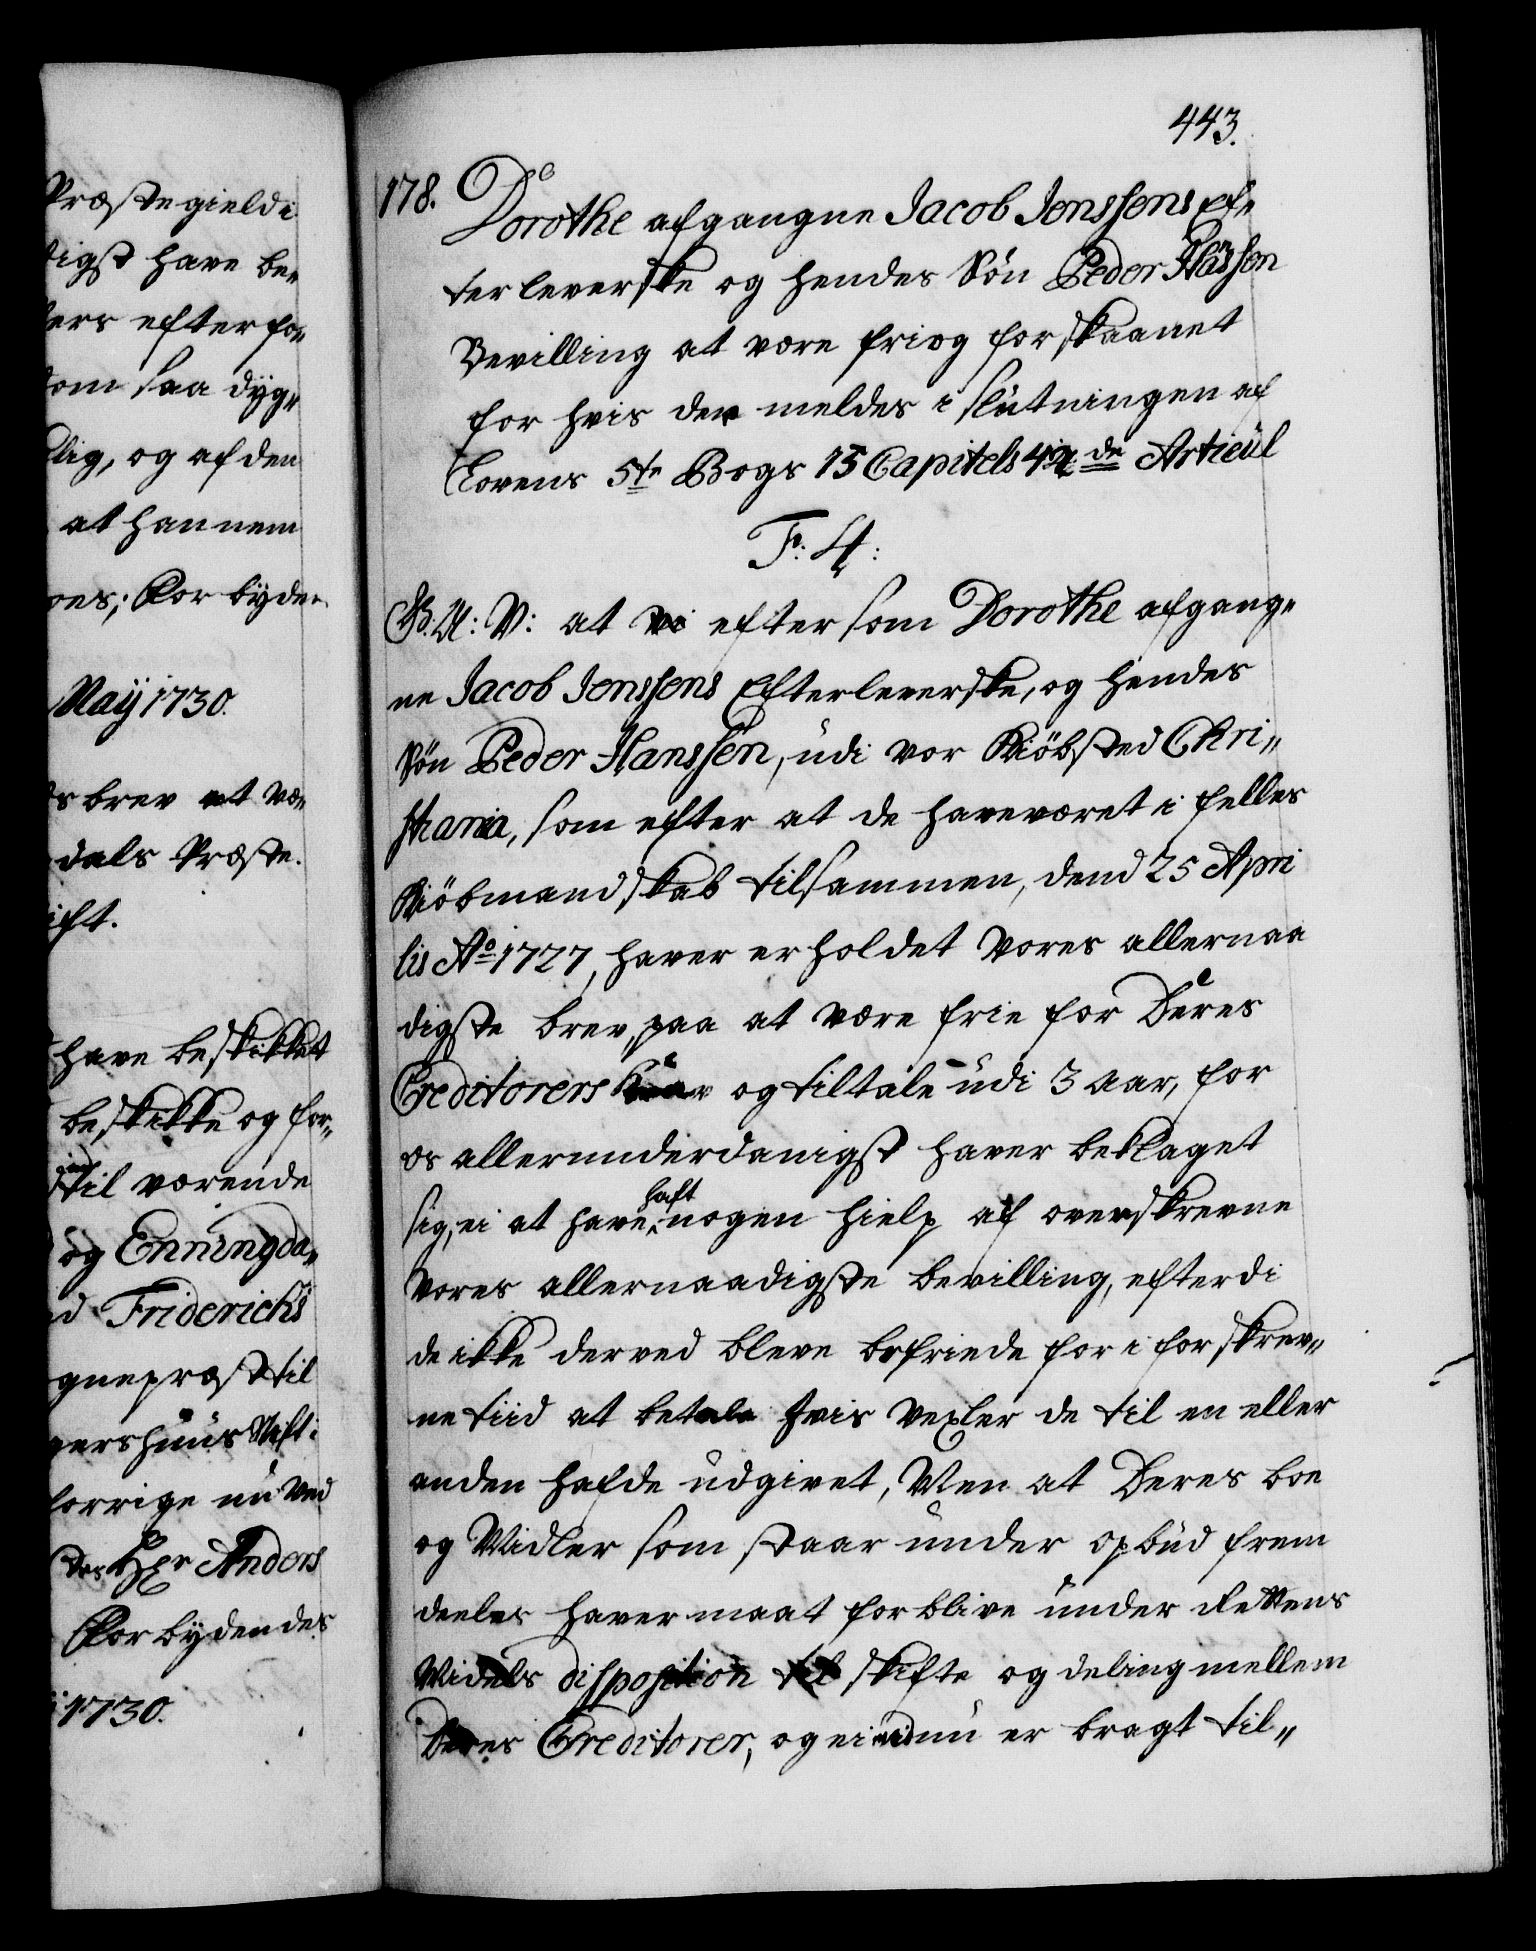 Præstegieldi
digst have be„
efterfor
som saa dyg„
lig, og af den
at hannem
Forbyden
May 1730.
brev at væ„
dals Præste„
ift.
have beskikket
beskikke og for„
til værende
og Enningda„
Friderichs
gnepræst til
gershuus Stift
forrige nu ved
Hr Anders
Forbydendes
1730.
443.
178.
Dorothe afgangne Jacob Jenssens Ef„
terleverske og hendes Søn Peder Hanssen
Bevilling at være fri og forskaanet
for hvis der meldes i slutningen af
Lovens 5te Bogs 13 Capitels 42de Articul
F: 4:
G. A: V: at vi eftersom Dorothe afgang„
ne Jacob Jenssens Efterleverske, og hendes
Søn Peder Hanssen, udi vor Kiöbsted Chri„
stiania, som efter at de have været i felles
Kiöbmandskab tilsammen, dend 25 Apri
lis Ao 1727, haver erholdet Vores allernaa
digste brev, paa at være frie for Deres
Creditorers Krav og tiltale udi 3 aar, for
os allerunderdanigst haver beklaget
sig, ei at have haft nogen hielp af ovenskrevne
Vores allernaadigste bevilling, efterdi
de ikke derved bleve befriede for i forskrev„
ne tiid at betale hvis Vexler de til en eller
anden hafde udgivet, Men at Deres boe
og Midler som staar under opbud frem
deeles haver maat forblive under Rettens
Middels disposition til skifte og deling mellem
Deres Creditorer, og ei endnu er bragt til„